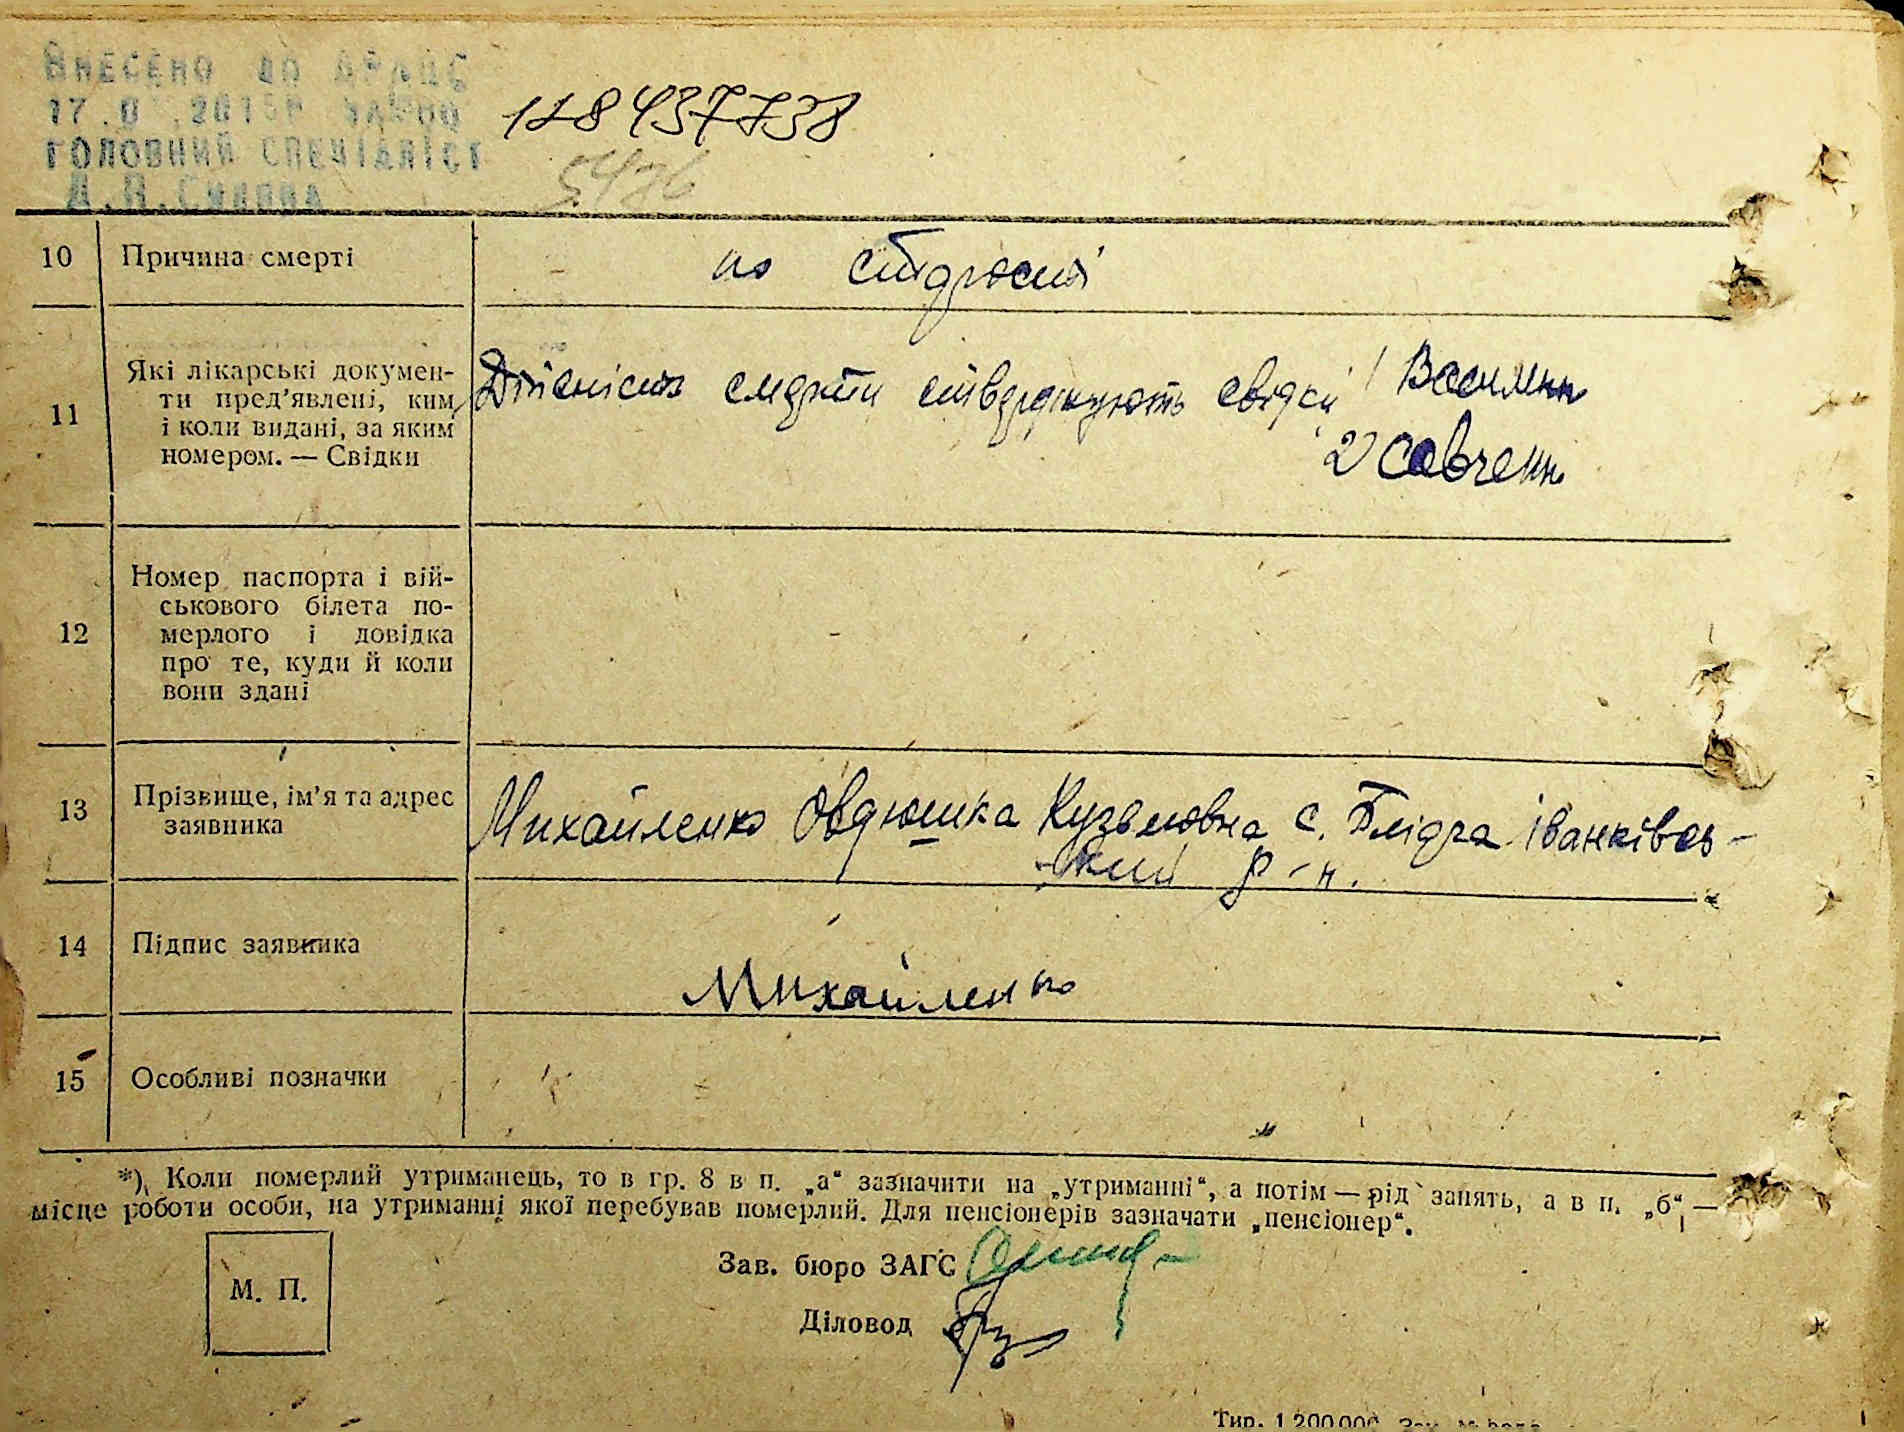 ВНЕСЕНО ДО ДРАЦС
ГОЛОВНИЙ СПЕЦІАЛІСТ
128437738
5476
10 Причина смерті по старості
11 Які лікарські докумен-
ти пред'явлені, ким
і коли видані, за яким
номером. — Свідки
Дійсність смерти стверджують свідки 1 Василенко
2) Савченко
12 Номер паспорта і вій-
ськового білета по-
мерлого і довідка
про те, куди й коли
вони здані
13 Прізвище, ім'я та адрес
заявника
Михайленко Овдюшка Кузьмовна с. Блідча Іванківсь-
-кий р-н.
14 Підпис заявника
Михайленко
15 Особливі позначки
*) Коли померлий утриманець, то в гр. 8 в п. „а“ зазначити на „утриманні“, а потім — рід занять, а в п. „б“ —
місце роботи особи, на утриманні якої перебував померлий. Для пенсіонерів зазначати „пенсіонер“.
М. П.
Зав. бюро ЗАГС
Діловод
Тир. 1.200.000